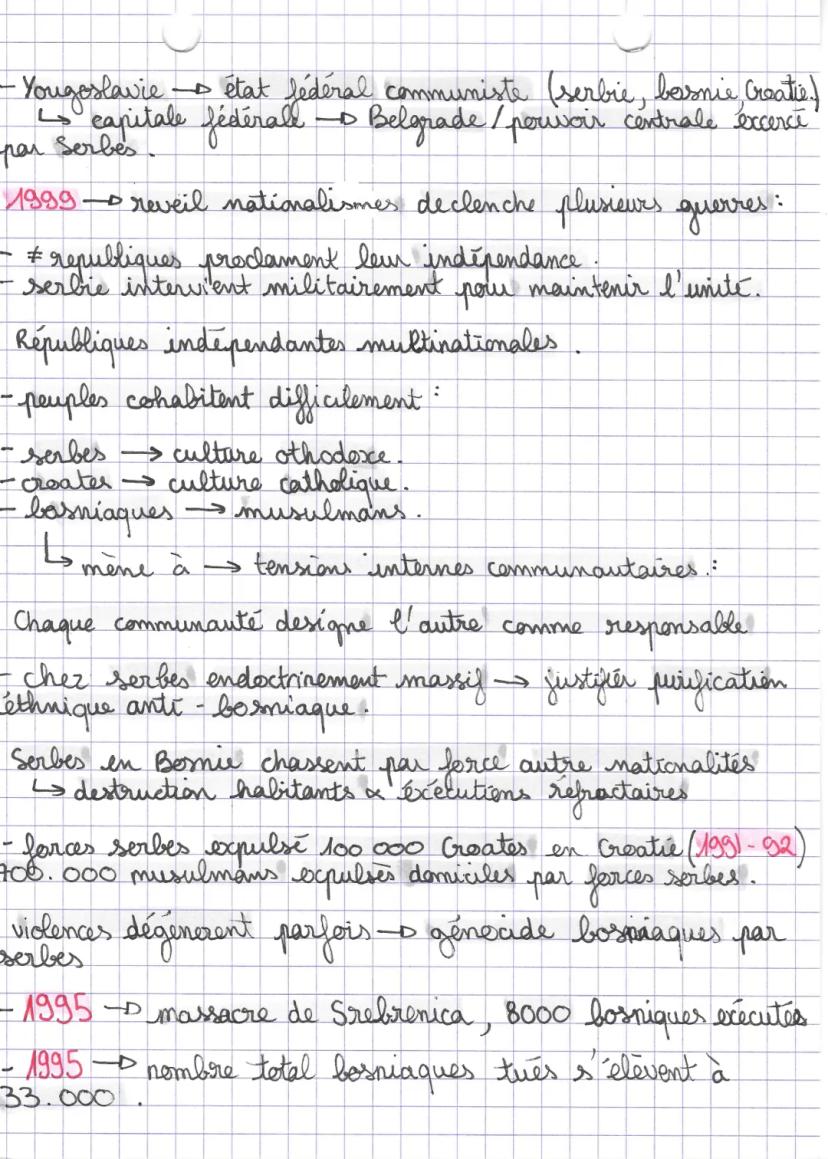 - Yougoslavie → état fédéral communiste (serbie, bosnie, Croatie.)
↳ capitale fédérale → Belgrade / pouvoir centrale excercé
par Serbes.
1999 → reveil nationalismes declenche plusieurs guerres :
- ≠ republiques proclament leur indépendance.
- serbie intervient militairement pour maintenir l'unité.
Républiques indépendantes multinationales.
- peuples cohabitent difficilement :
- serbes → culture othodoxe.
- croates → culture catholique.
- bosniaques → musulmans.
↳ mène à → tensions internes communautaires. :
Chaque communauté designe l'autre comme responsable
- chez serbes endoctrinement massif → justifier purification
éthnique anti-bosniaque.
Serbes en Bosnie chassent par force autre nationalités
↳ destruction habitants & éxécutions réfractaires
- forces serbes expulsé 100 000 Croates en Croatie (1991-92)
700.000 musulmans expulsés domiciles par forces serbes.
violences dégénerent parfois → génocide bosniaques par
serbes
- 1995 → massacre de Srebrenica, 8000 bosniques exécutés
- 1995 → nombre total bosniaques tués s'élèvent à
33.000.